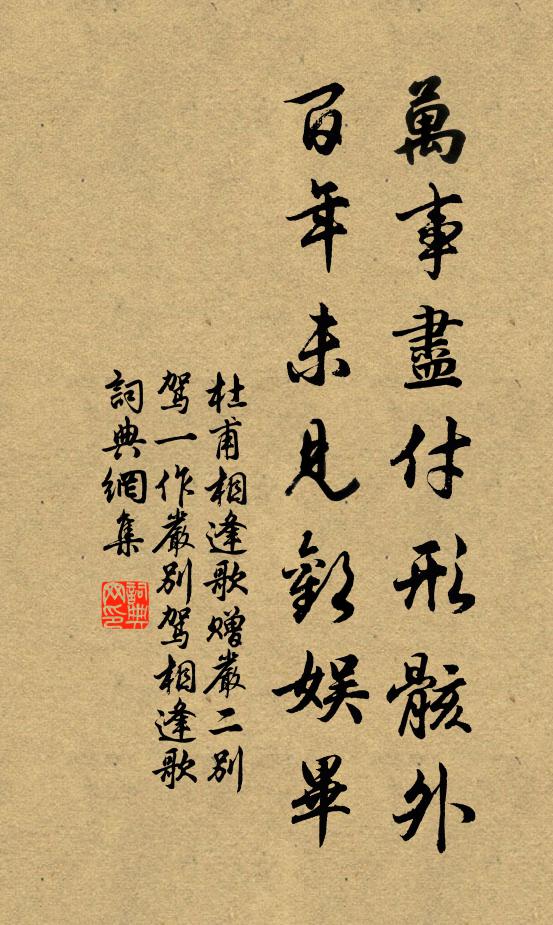 萬事盡付形骸外
百年未見歡娛畢
杜甫相逢歌贈嚴二別
駕一作嚴別駕相逢歌
詞典網集
詞典网印